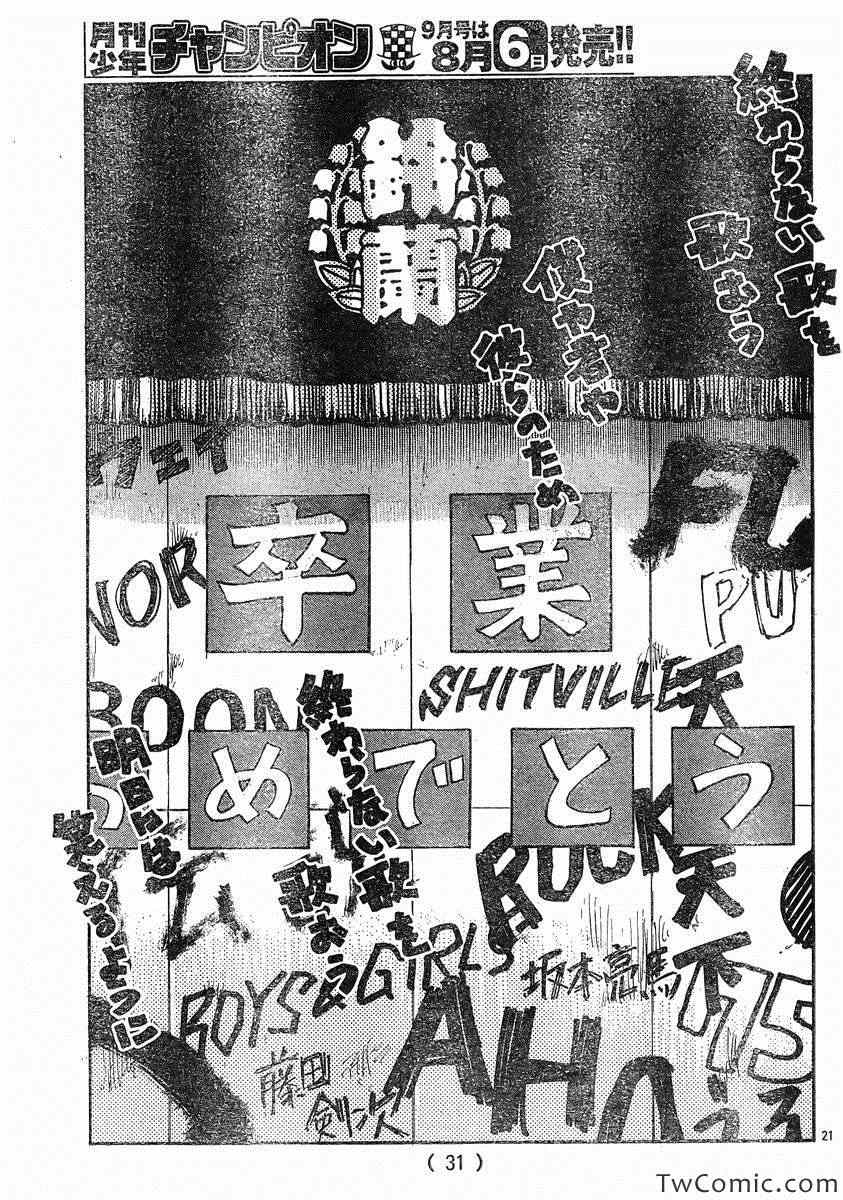 月刊少年チャンピオン 9月号は8月6日発売!!
終わらない歌を
歌おう
僕や君や
彼らのため
開蘭
ウェイ
卒業
FU
NOR
PU
BOON
SHITVILLE
めでとう
終わらない歌を
歌おう
明日には
笑えるように
ROCK
天
天下
BOYS & GIRLS
坂本亮馬
75
藤田
剣次
AHO
うろ
21
(31)
TwComic.com